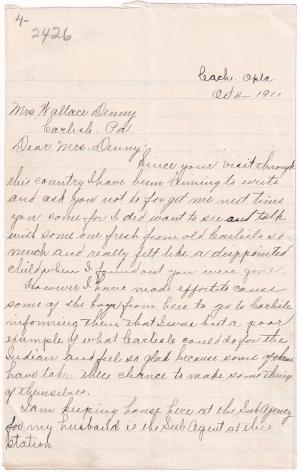 4-
2426
Cache, Okla.
Oct 11- 1911
Mrs Wallace Denny
Carlisle. Pa
Dear Mrs. Denny:
Since your visit through
this country I have been aiming to write
and ask you not to forget me next time
you come for I did want to see and talk
with some one fresh from old Carlisle so
much and really felt like a disappointed
child when I found out you were gone.
However I have made efforts to cause
some of the boys from here to go to Carlisle
informing them that I was but a poor
example of what Carlisle could do for the
Indian and feel so glad because some of them
have taken the chance to make something
of themselves.
I am keeping house here at the Sub Agency
for my husband is the Sub Agent at this
station